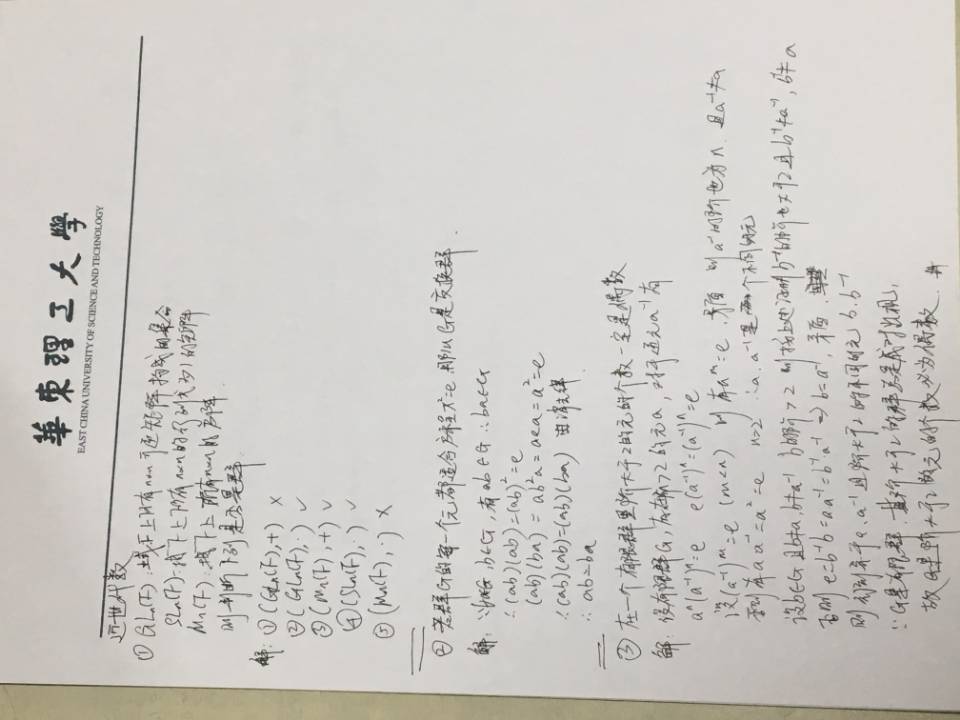 華東理工大學
EAST CHINA UNIVERSITY OF SCIENCE AND TECHNOLOGY
近世代数
① GLn(F): 域F上所有n×n可逆矩阵构成的集合
SLn(F): 域F上所有n×n的行列式为1的矩阵
Mn(F): 域F上所有n×n的方阵
则判断下列是否是群.
解: ① (GLn(F), +) ×
② (GLn(F), ·) ✓
③ (Mn(F), +) ✓
④ (SLn(F), ·) ✓
⑤ (Mn(F), ·) ×
② 若群G的每一个元都适合方程x²=e, 那么G是交换群.
解: ∵ a∈G, b∈G, 有ab∈G ∴ba∈G
∴(ab)(ab)=(ab)²=e
(ab)(ba) = ab²a = aea = a² = e
∴(ab)(ab)=(ab)(ba) 由消去律
∴ ab=ba
③ 在一个有限群里阶大于2的元的个数一定是偶数
解: 设有限群G, 存在n>2的元a, 对于逆元a⁻¹有
aⁿ(a⁻¹)ⁿ=e e(a⁻¹)ⁿ=(a⁻¹)ⁿ=e
设(a⁻¹)ᵐ=e (m<n) 则有aᵐ=e, 矛盾 则a⁻¹的阶也为n, 且a⁻¹≠a
否则有a a⁻¹=a²=e n>2 ∴a, a⁻¹是两个不同的元
设b∈G 且b≠a, b≠a⁻¹ b的阶>2 则按上述证明b⁻¹的阶也大于2且b⁻¹≠a⁻¹, b⁻¹≠a
否则 e=b⁻¹b=aa⁻¹=b⁻¹·a⁻¹ ⇒ b=a⁻¹, 矛盾.
则 a, a⁻¹ 且阶大于2的不同的元 b, b⁻¹
∵ G是有限群 其阶大于2的 总是成对出现,
故G里阶大于2的元的个数必为偶数. #